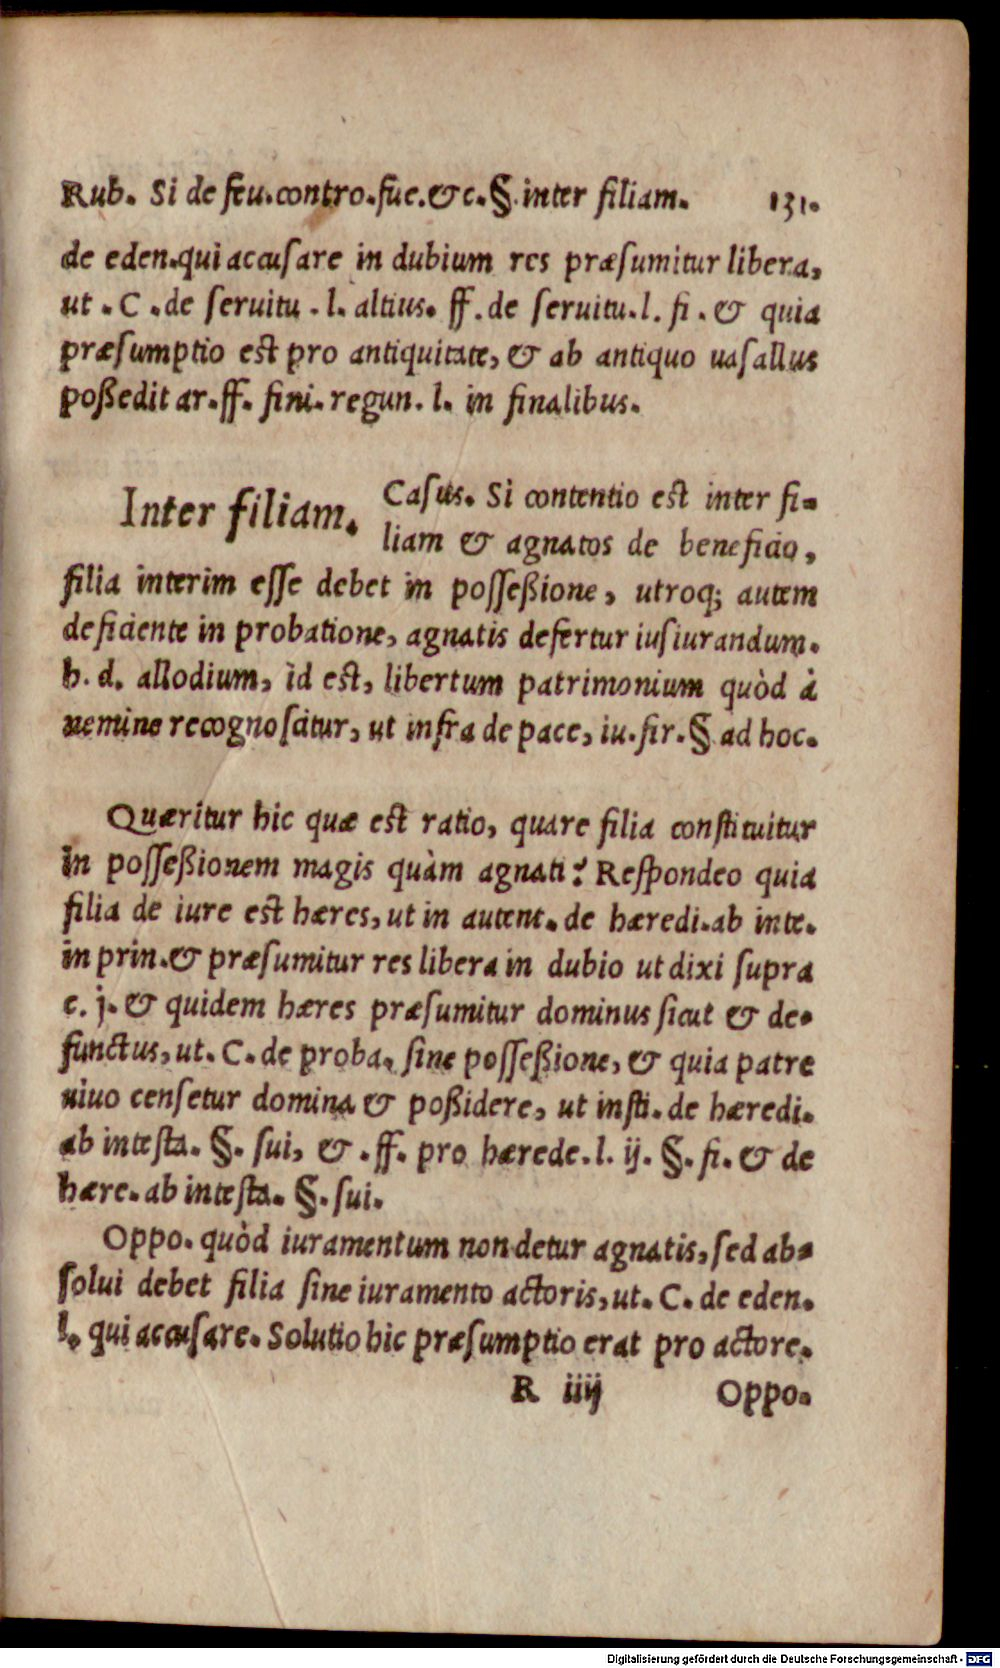 Rub. Si de feu.contro.fue.&c.§ inter filiam. 131.
de eden.qui accusare in dubium res præsumitur libera,
ut . C .de seruitu . l. altius. ff. de seruitu.l. fi . & quia
præsumptio est pro antiquitate, & ab antiquo uasallus
poßedit ar.ff. fini. regun. l. in finalibus.
Inter filiam. Casus. Si contentio est inter fi=
liam & agnatos de beneficio,
filia interim esse debet in posseßione, utroq; autem
deficiente in probatione, agnatis defertur iusiurandum.
h. d. allodium, id est, libertum patrimonium quòd à
nemine recognoscitur, ut infra de pace, iu.fir.§ ad hoc.
Quæritur hic quæ est ratio, quare filia constituitur
in posseßionem magis quàm agnati? Respondeo quia
filia de iure est hæres, ut in autent. de hæredi.ab inte.
in prin.& præsumitur res libera in dubio ut dixi supra
e. j. & quidem hæres præsumitur dominus sicut & de=
functus, ut. C. de proba. sine posseßione, & quia patre
uiuo censetur domina & poßidere, ut insti. de hæredi.
ab intesta. §. sui, & .ff. pro hærede.l. ij. §. fi. & de
hære. ab intesta. §. sui.
Oppo. quòd iuramentum non detur agnatis, sed ab=
solui debet filia sine iuramento actoris, ut. C. de eden.
l. qui accusare. Solutio hic præsumptio erat pro actore.
R iiij Oppo.
Digitalisierung gefördert durch die Deutsche Forschungsgemeinschaft - DFG